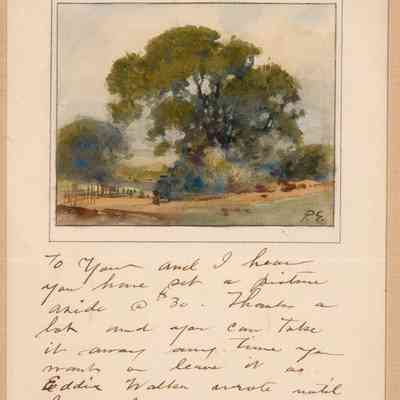 P.E.
To You and I hear
you have set a picture
aside @ $30. Thanks a
lot and you can take
it away any time you
want or leave it as
Eddie Walker wrote until